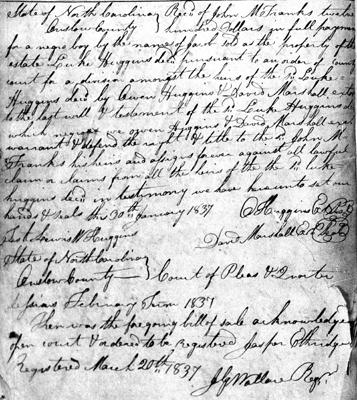 State of North Carolina Recd of John M Franks twelve
Onslow County hundred Dollars in full payment
for a negro boy by the name of Jack sold as the property of the
estate Luke Huggins decd pursuant to an order of court
court for a division amongst the heirs of the sd Luke
Huggins decd by Owen Huggins & David Marshall
to the last will & testament of the sd Luke Huggins decd
which negro we Owen Huggins & David Marshall
warrant & defend the right & title to the sd John M
Franks his heirs and assigns forever against all lawful
claim or claims from all the heirs of the sd Luke
Huggins decd in testimony we have hereunto set our
hands & seals this 30th January 1837
O Huggins
Test Lewis W Huggins David Marshall
State of North Carolina
Onslow County Court of Pleas & Quarter
Sessions February Term 1837
Then was the foregoing bill of sale acknowledged
open court & ordered to be Registered Jasper Ethridge
Registered March 20th 1837
Wallace Regr